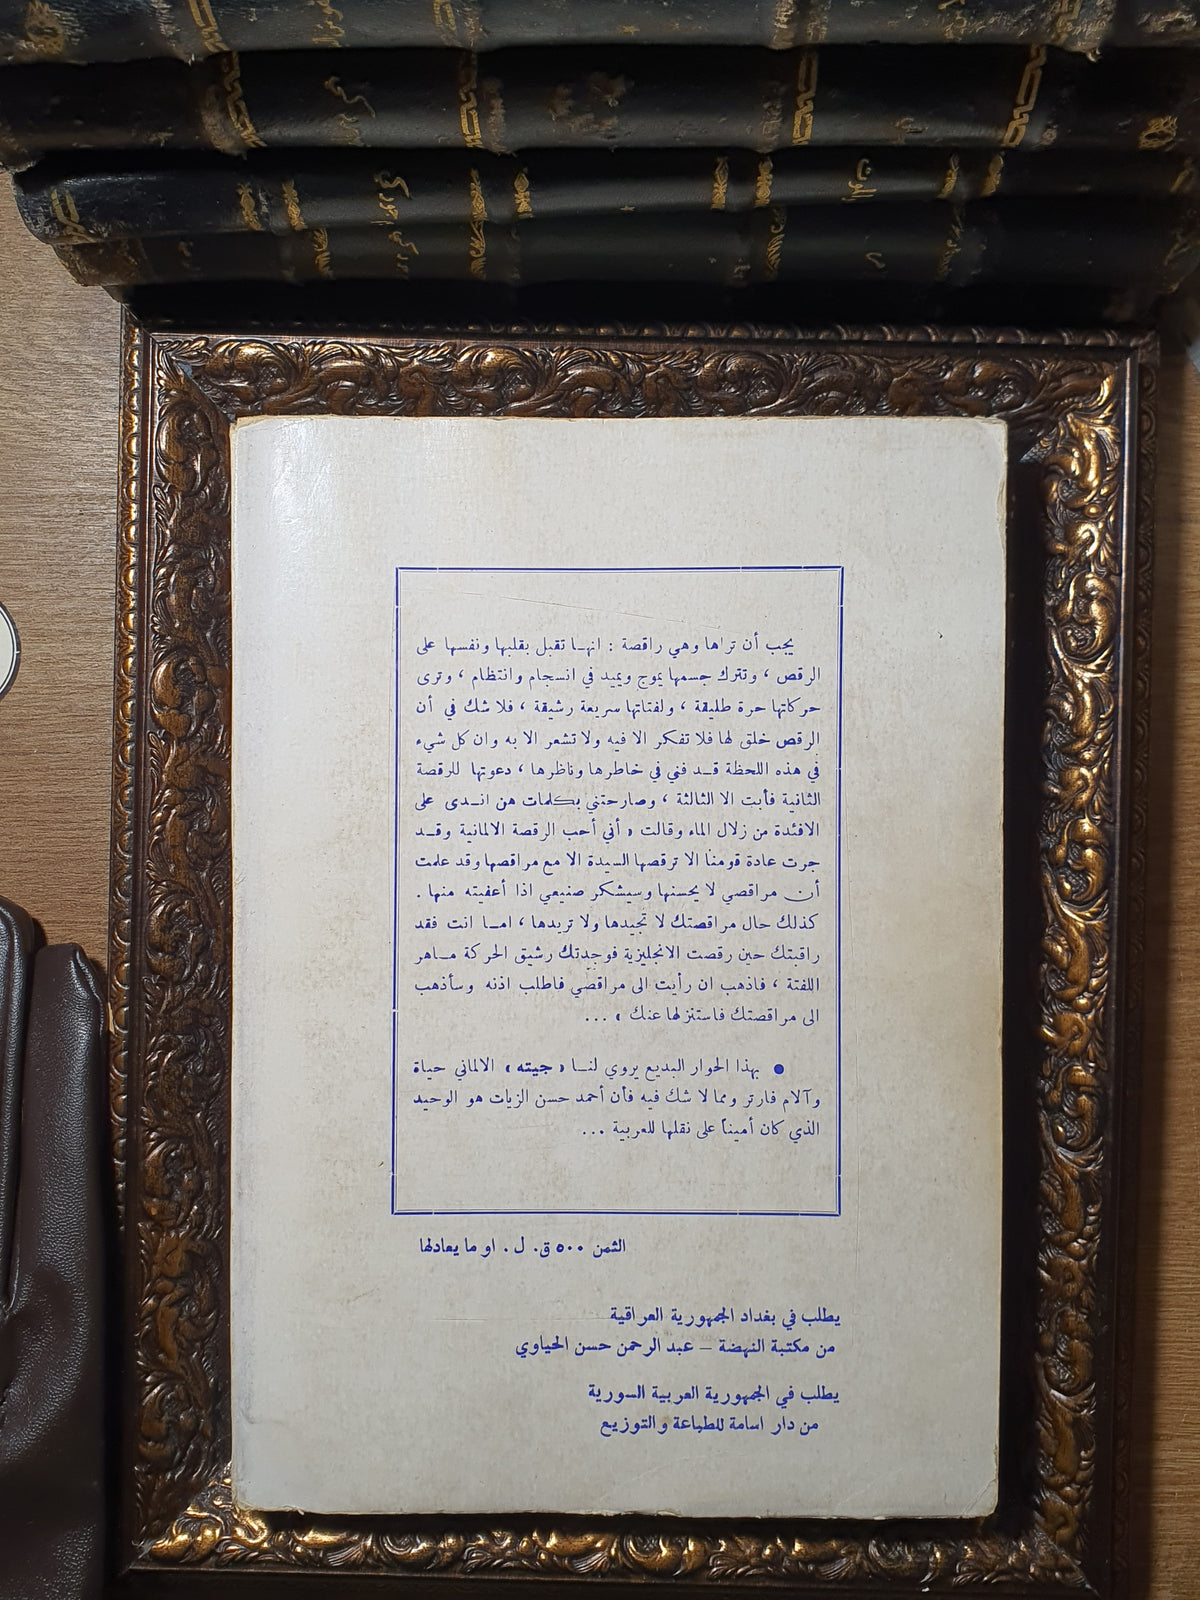 يجب أن تراها وهي راقصة : انهـا تقبل بقلبها ونفسها على
الرقص ، وتترك جسمها يموج ويميد في انسجام وانتظام ، وترى
حركاتها حرة طليقة ، ولفتاتها سريعة رشيقة ، فلا شك في أن
الرقص خلق لها فلا تفكر الا فيه ولا تشعر الا به وان كل شيء
في هذه اللحظة قـد فني في خاطرها وناظرها ، دعوتها للرقصة
الثانية فأبت الا الثالثة ، وصارحتني بكلمات هن انـدى على
الافئدة من زلال الماء وقالت « أني أحب الرقصة الالمانية وقـد
جرت عادة قومنا الا ترقصها السيدة الا مع مراقصها وقد علمت
أن مراقصي لا يحسنها وسيشكر صنيعي اذا أعفيته منها .
كذلك حال مراقصتك لا تجيدها ولا تريدها ، امـا انت فقد
راقبتك حين رقصت الانجليزية فوجدتك رشيق الحركة مـاهر
اللفتة ، فاذهب ان رأيت الى مراقصي فاطلب اذنه وسأذهب
الى مراقصتك فاستنزلها عنك » ...
● بهذا الحوار البديع يروي لنـا « جيته » الالماني حياة
وآلام فارتر ومما لا شك فيه فأن أحمد حسن الزيات هو الوحيد
الذي كان أميناً على نقلها للعربية ...
الثمن ٥٠٠ ق. ل. او ما يعادلها
يطلب في بغداد الجمهورية العراقية
من مكتبة النهضة – عبد الرحمن حسن الحياوي
يطلب في الجمهورية العربية السورية
من دار اسامة للطباعة والتوزيع